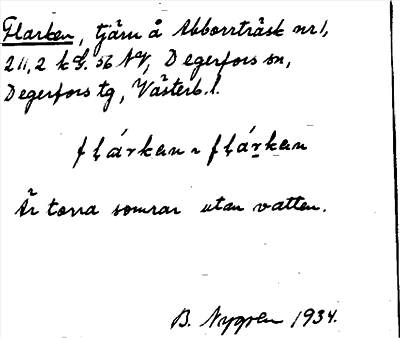 Flarken, tjärn å Abborrträsk nr 1,
211,2 kf. 56 NV, Degerfors sn,
Degerfors tg, Västerb. l.
fḷárken ~ fḷárken
Är torra somrar utan vatten.
B. Nygren 1934.